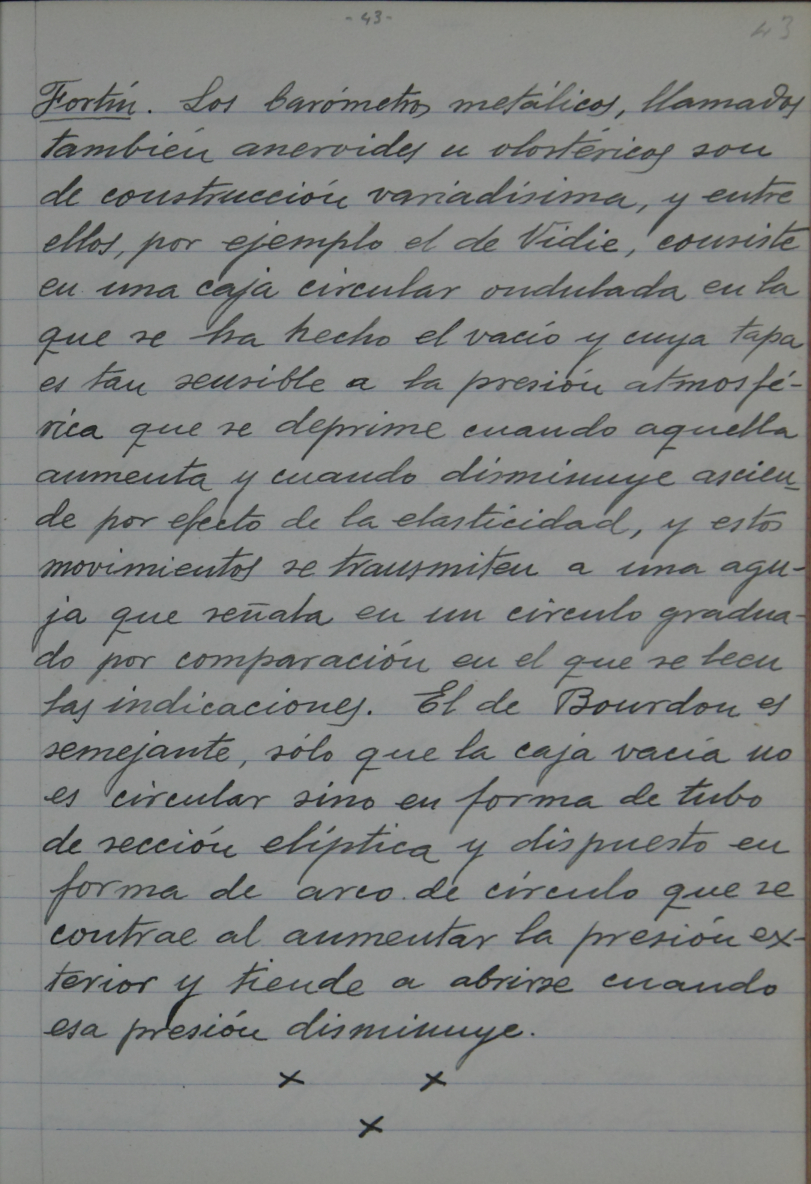 - 43 -
43
Fortín. Los barómetros metálicos, llamados
también aneroides u olostéricos son
de construcción variadísima, y entre
ellos, por ejemplo el de Vidie, consiste
en una caja circular ondulada en la
que se ha hecho el vacío y cuya tapa
es tan sensible a la presión atmosfé-
rica que se deprime cuando aquella
aumenta y cuando disminuye ascien-
de por efecto de la elasticidad, y estos
movimientos se transmiten a una agu-
ja que señala en un círculo gradua-
do por comparación en el que se leen
las indicaciones. El de Bourdon es
semejante, sólo que la caja vacía no
es circular sino en forma de tubo
de sección elíptica y dispuesto en
forma de arco de círculo que se
contrae al aumentar la presión ex-
terior y tiende a abrirse cuando
esa presión disminuye.
x x
x